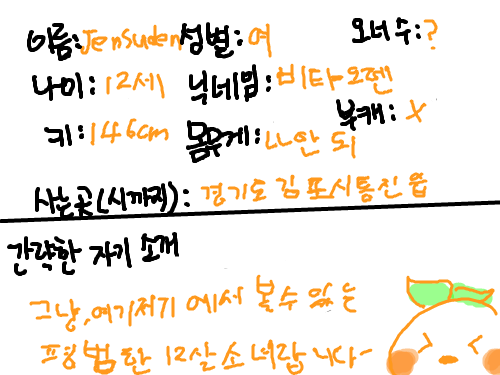 이름: Jensuden 성별: 여 오너 수: ?
나이: 12세 닉네임: 비타오렌
부캐: X
키: 146cm 몸무게: 안 되
사는곳(시까지): 경기도 김포시 통진읍
간략한 자기 소개
그냥, 여기저기 에서 볼수 있는
평범한 12살 소녀랍니다~